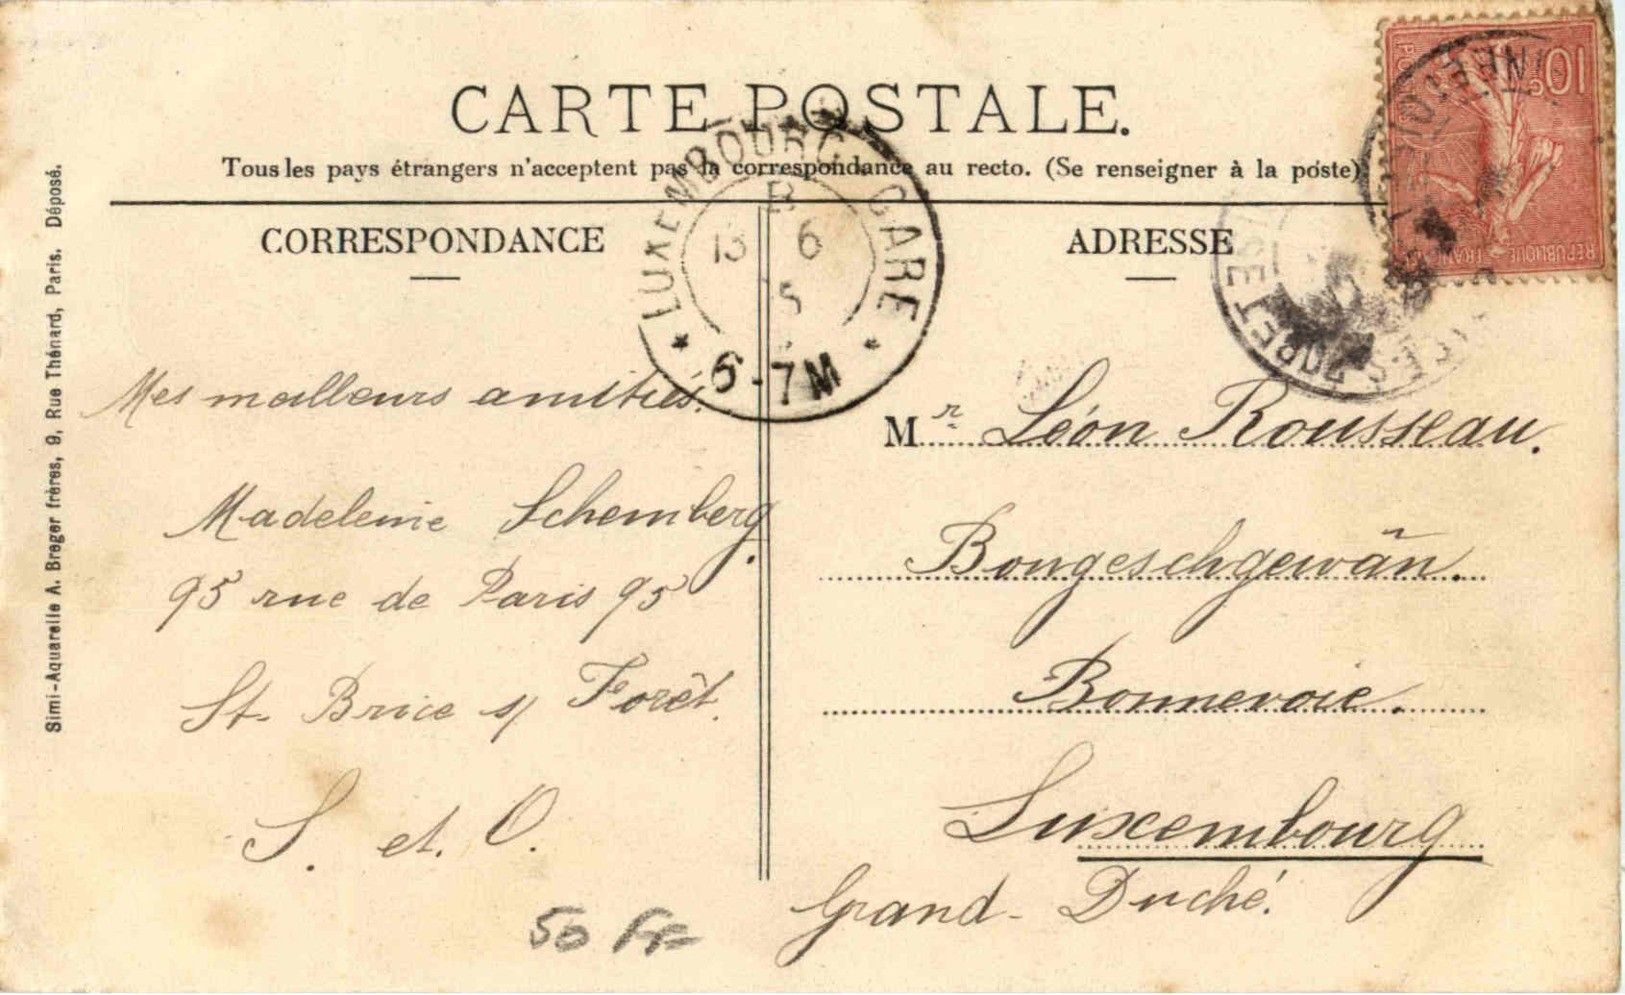 CARTE POSTALE.
Tous les pays étrangers n'acceptent pas la correspondance au recto. (Se renseigner à la poste)
CORRESPONDANCE
ADRESSE
LUXEMBOURG GARE
B
13 6
5
6-7M
10
REPUBLIQUE FRANC
Mes meilleurs amitiés.
Madeleine Schemberg.
95 rue de Paris 95
St. Brice s/ Forêt.
S. et. O.
50 Fr
Mr Léon Rousseau.
Bongeschgewān.
Bonnevoie.
Luxembourg
Grand-Duché.
Simi-Aquarelle A. Breger frères, 9, Rue Thénard, Paris. Déposé.